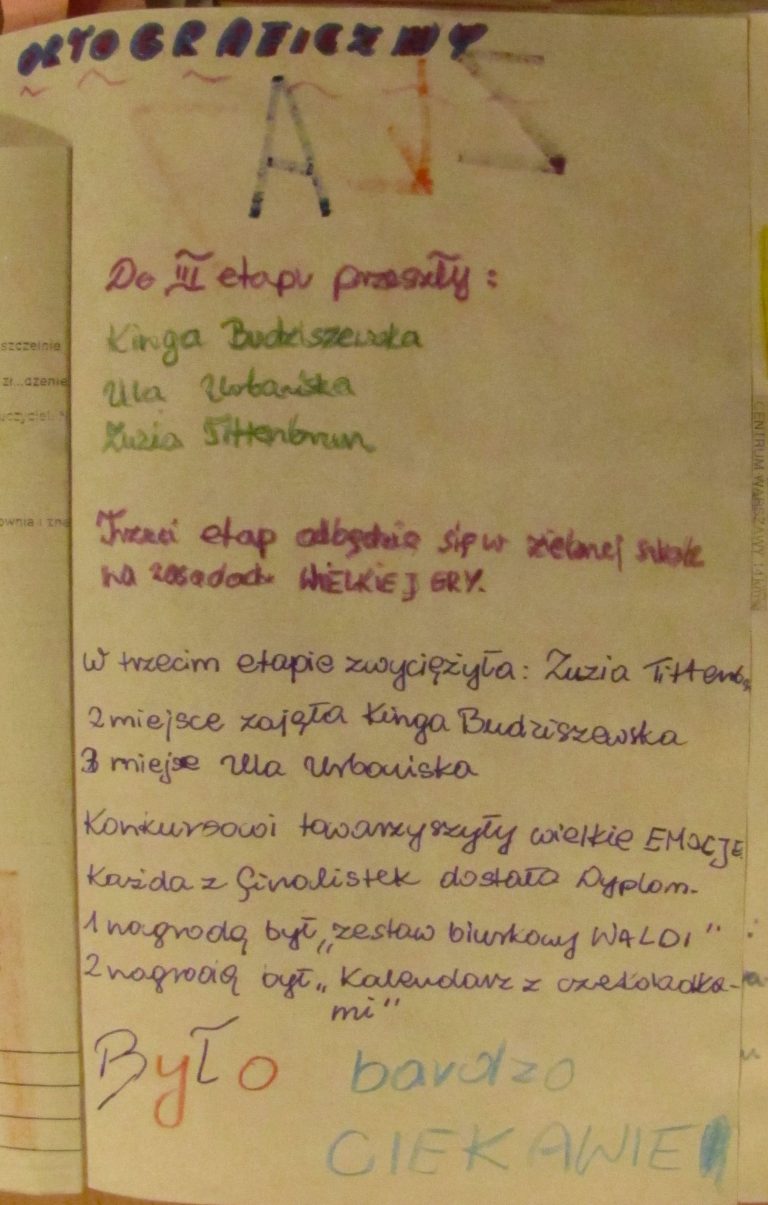 ORTOGRAFICZNY
AS
Do III etapu przeszły:
Kinga Budziszewska
Ula Urbańska
Zuzia Tittenbrun
Trzeci etap odbędzie się w zielonej szkole
na zasadach WIELKIEJ GRY.
W trzecim etapie zwyciężyła: Zuzia Tittenb
2 miejsce zajęła Kinga Budziszewska
3 miejse Ula Urbańska
Konkursowi towarzyszyły wielkie EMOCJE
Każda z finalistek dostała Dyplom.
1 nagrodą był „zestaw biurkowy WALDI"
2 nagrodą był „Kalendarz z czekoladka-
mi"
Było bardzo
CIEKAWIE
szczelnie
dzenie
ownia i zna
CENTRUM WARSZAWY